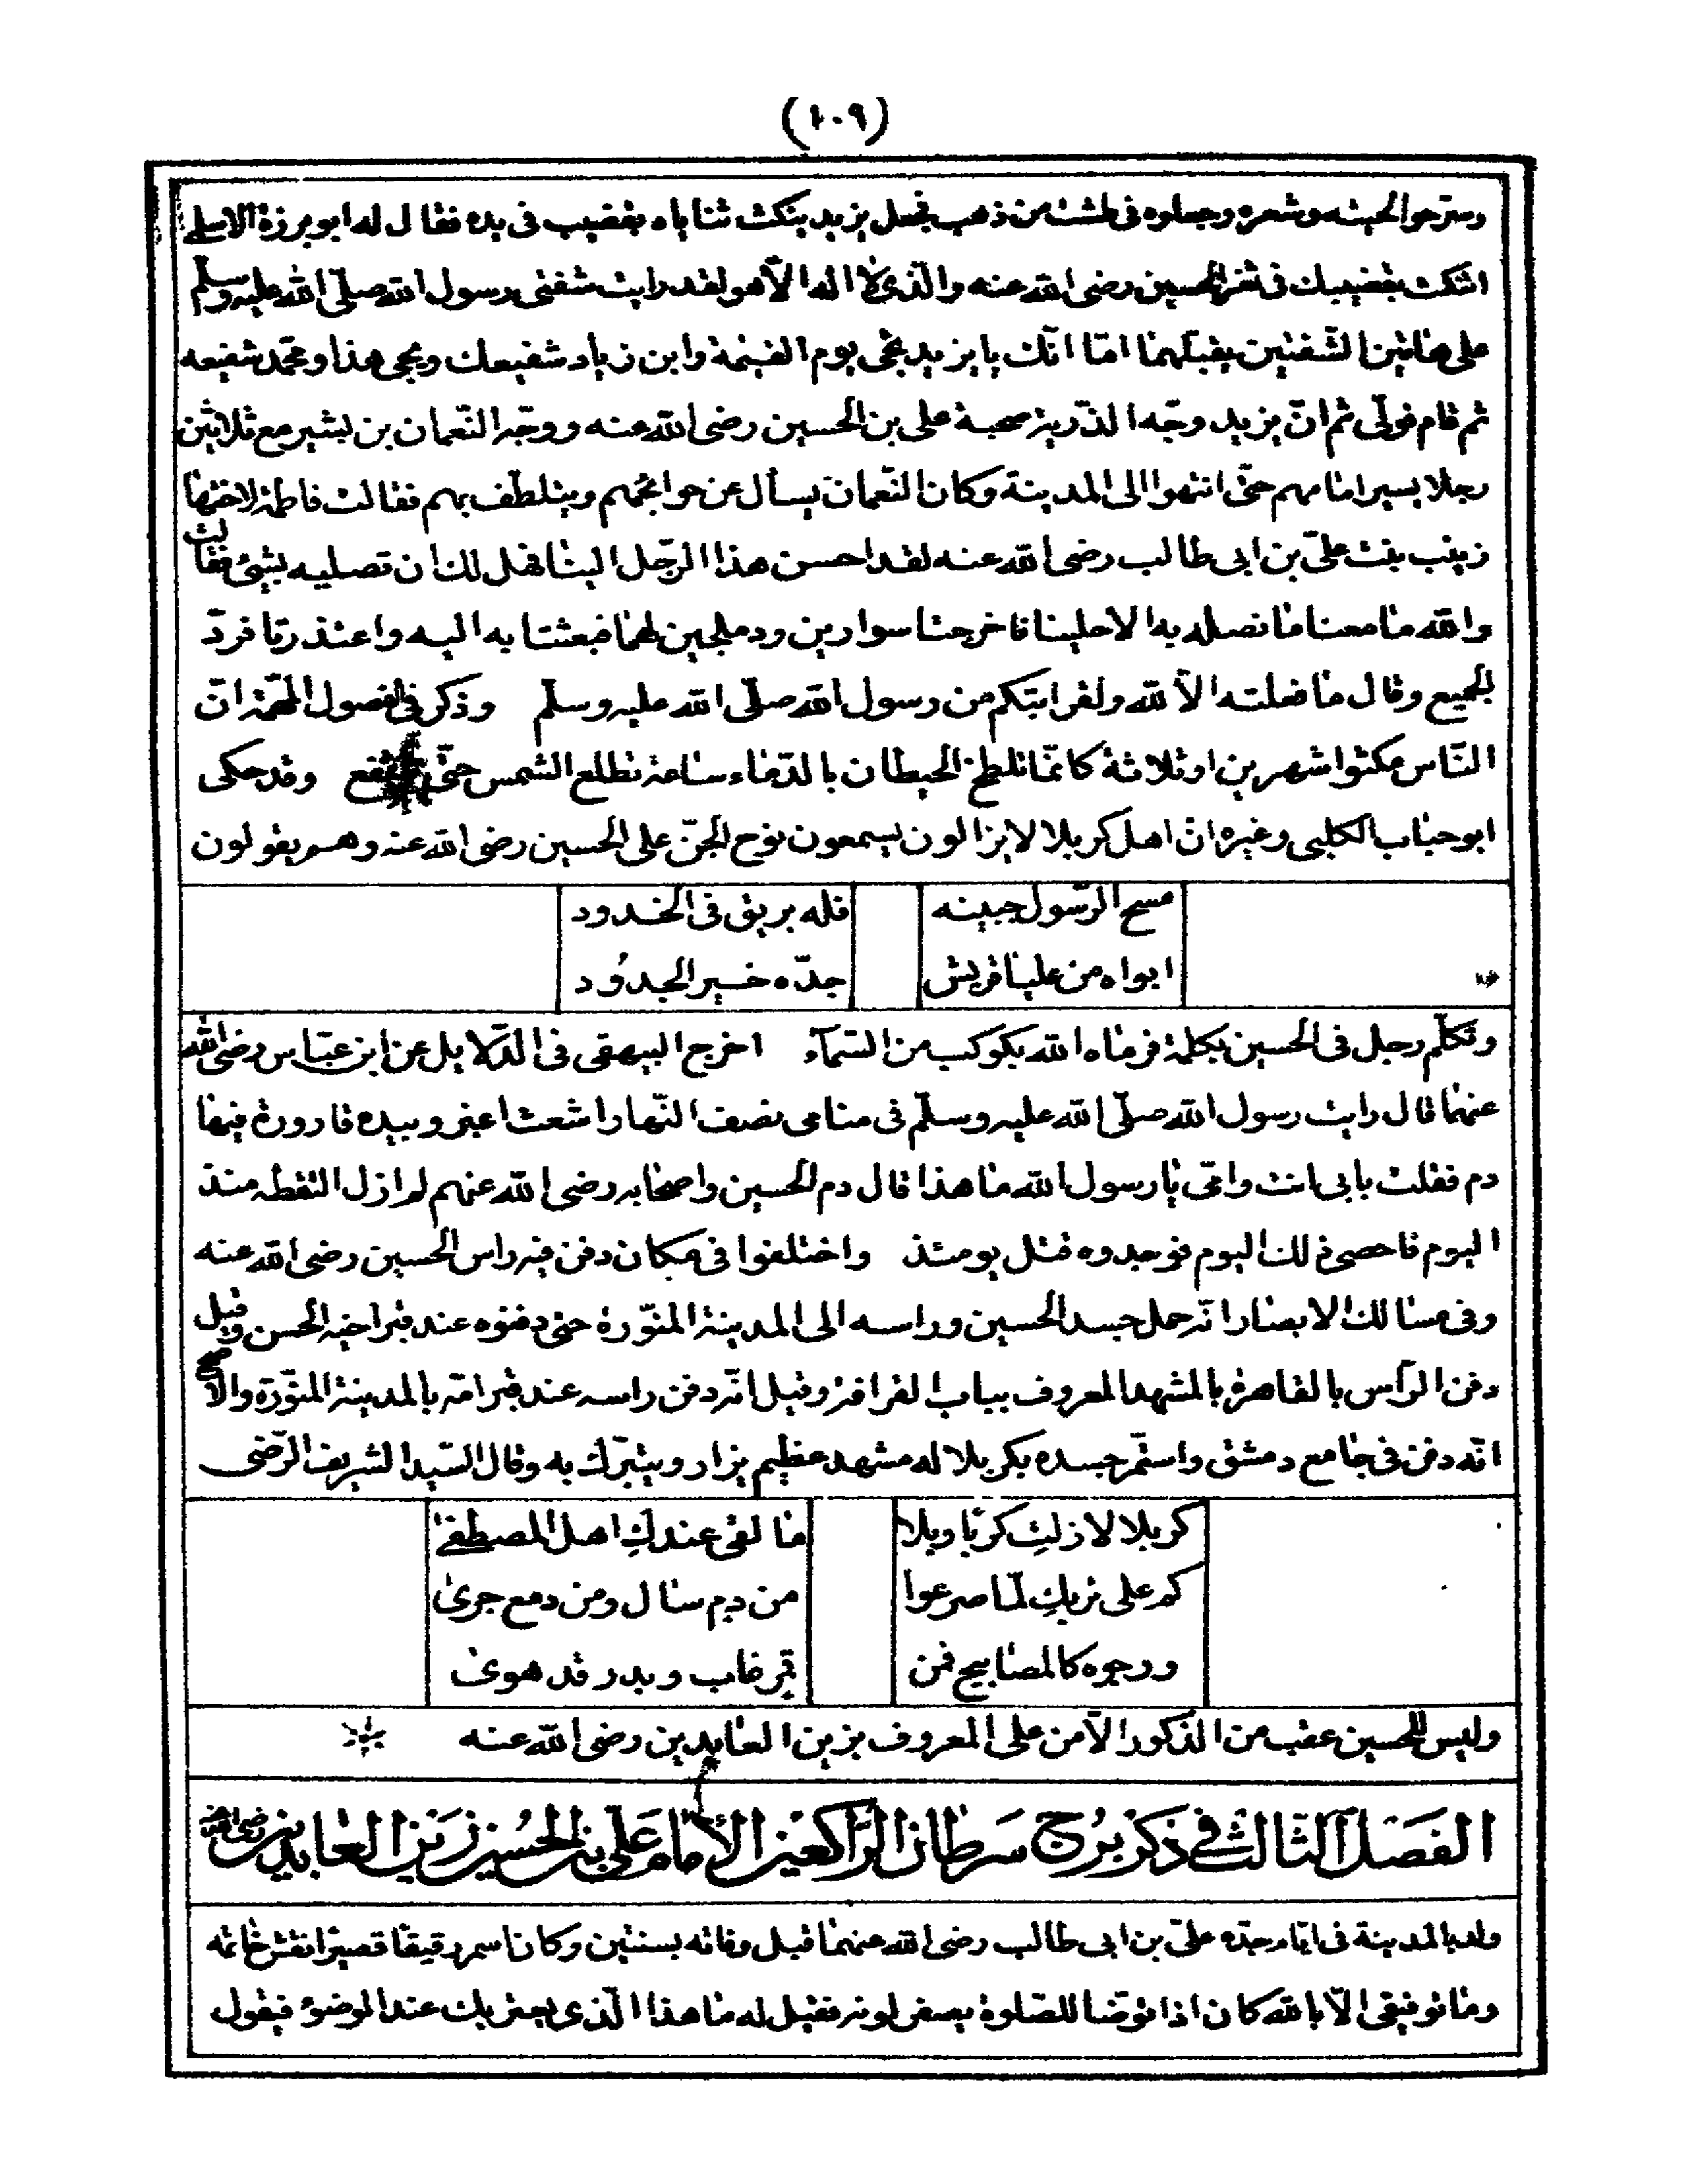 (١٠٩)
وسرّحوا لحيته وشعره وجعلوه فى طشت من ذهب فجعل يزيد ينكث ثناياه بقضيب فى يده فقال له ابو برزة الاسلمى
اتنكث بقضيبك فى ثغر الحسين رضى الله عنه والّذى لا اله الّا هو لقد رايت شفتى رسول الله صلّى الله عليه وسلّم
على هاتين الشّفتين يقبّلهما امّا انّك يا يزيد تجئ يوم القيمة وابن زياد شفيعك ويجئ هذا ومحمّد شفيعه
ثم قام فولّى ثم انّ يزيد وجّه الذّرية صحبة على بن الحسين رضى الله عنه ووجّه النّعمان بن بشير مع ثلاثين
رجلا يسير امامهم حتّى انتهوا الى المدينة وكان النّعمان يسأل عن حوائجهم ويتلطّف بهم فقالت فاطمة لاختها
زينب بنت علىّ بن ابى طالب رضى الله عنه لقد احسن هذا الرّجل الينا فهل لك ان تصليه بشئ فقالت
والله ما معنا ما نصله به الا حلينا فاخرجتا سوارين ودملجين لهما فبعثتا به اليه واعتذرتا فردّ
الجميع وقال ما فعلته الّا لله ولقرابتكم من رسول الله صلّى الله عليه وسلّم وذكر فى الفصول المهمّة انّ
النّاس مكثوا شهرين او ثلاثة كانّما تلطخ الحيطان بالدّماء ساعة تطلع الشمس حتّى ترتفع وقد حكى
ابو حباب الكلبى وغيره انّ اهل كربلا لا يزالون يسمعون نوح الجنّ على الحسين رضى الله عنه وهم يقولون
مسح الرّسول جبينه فله بريق فى الخدود
ابواه من عليا قريش جدّه خير الجدود
وتكلّم رجل فى الحسين بكلمة فرماه الله بكوكب من السّمآء اخرج البيهقى فى الدّلايل عن ابن عبّاس رضى الله
عنهما قال رايت رسول الله صلّى الله عليه وسلّم فى منامى نصف النّهار اشعث اغبر وبيده قارورة فيها
دم فقلت بابى انت وامّى يا رسول الله ما هذا قال دم الحسين واصحابه رضى الله عنهم لم ازل التقطه منذ
اليوم فاحصى ذلك اليوم فوجدوه قتل يومئذ واختلفوا فى مكان دفن فيه راس الحسين رضى الله عنه
وفى مسالك الابصار انّه حمل جسد الحسين وراسه الى المدينة المنوّرة حتى دفنوه عند قبر اخيه الحسن وقيل
دفن الرّأس بالقاهرة بالمشهد المعروف بباب القرافة وقيل انّه دفن راسه عند قبر امّه بالمدينة المنوّرة والاصح
انّه دفن فى جامع دمشق واستمّر جسده بكربلا له مشهد عظيم يزار ويتبرّك به وقال السّيد الشريف الرّضى
كربلا لا زلتِ كربًا وبلا ما لقى عندكِ اهل المصطفى
كم على تربكِ لمّا صرعوا من دم سال ومن دمع جرى
ووجوه كالمصابيح فمن قمر غاب وبدر قد هوى
وليس للحسين عقب من الذّكور الّا من على المعروف بزين العابدين رضى الله عنه
الفصل الثّالث فى ذكر برج سرطان الرّاكعين الامام على بن الحسين زين العابدين رضى الله عنه
ولد بالمدينة فى ايّام جدّه علىّ بن ابى طالب رضى الله عنهما قبل وفاته بسنتين وكان اسمر رقيقًا قصيرًا نقش خاتمه
وما توفيقى الّا بالله كان اذا توضّا للصّلوة يصفر لونه فقيل له ما هذا الّذى يعتريك عند الوضوء فيقول